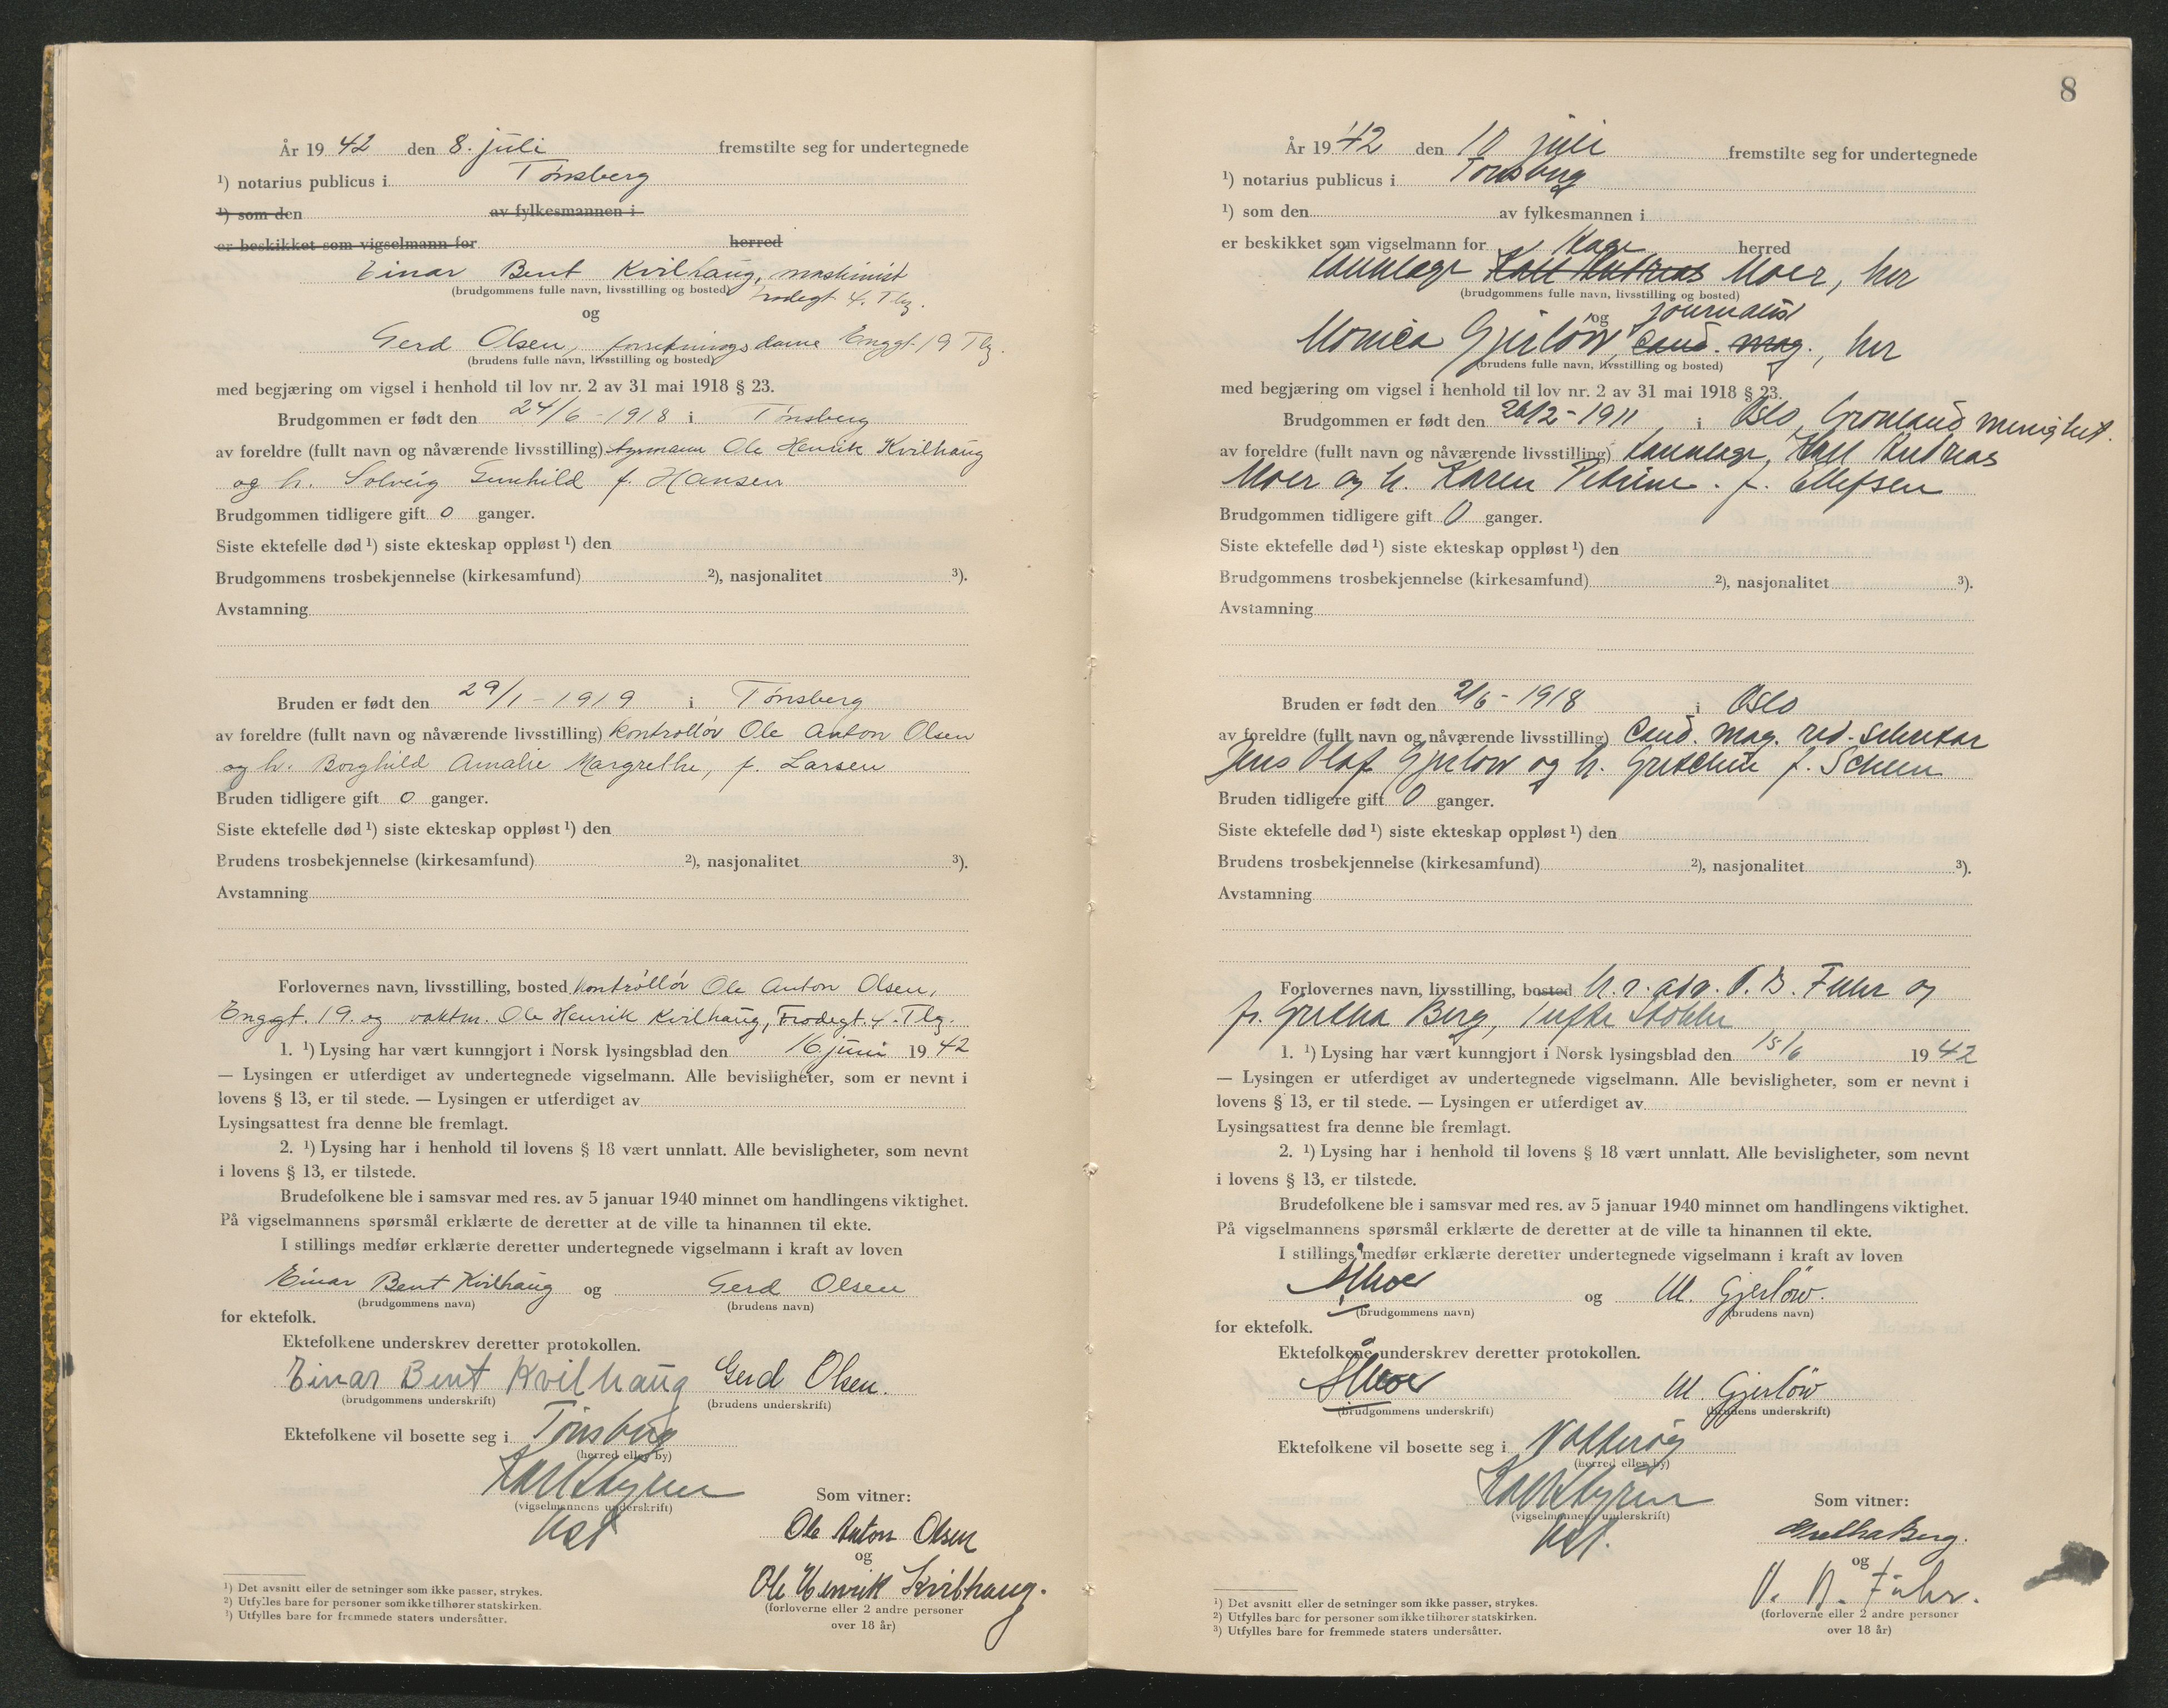 År 19 42 den 8. juli fremstilte seg for undertegnede
¹) notarius publicus i Tønsberg
¹) som den av fylkesmannen i
er beskikket som vigselmann for herred
Einar Bent Kvilhaug, maskinist
(brudgommens fulle navn, livsstilling og bosted) Frodegt 4. Tbg.
og
Gerd Olsen, forretningsdame Enggt. 19 Tbg.
(brudens fulle navn, livsstilling og bosted)
med begjæring om vigsel i henhold til lov nr. 2 av 31 mai 1918 § 23.
Brudgommen er født den 24/6 - 1918 i Tønsberg
av foreldre (fullt navn og nåværende livsstilling) Ole Henrik Kvilhaug
og h. Solveig Gunhild f. Hansen
Brudgommen tidligere gift 0 ganger.
Siste ektefelle død ¹) siste ekteskap oppløst ¹) den
Brudgommens trosbekjennelse (kirkesamfund) ²), nasjonalitet ³).
Avstamning
Bruden er født den 29/1 - 1919 i Tønsberg
av foreldre (fullt navn og nåværende livsstilling) kontrollør Ole Anton Olsen
og h. Borghild Amalie Margrethe, f. Larsen
Bruden tidligere gift 0 ganger.
Siste ektefelle død ¹) siste ekteskap oppløst ¹) den
Brudens trosbekjennelse (kirkesamfund) ²), nasjonalitet ³).
Avstamning
Forlovernes navn, livsstilling, bosted kontrollør Ole Anton Olsen,
Enggt. 19. og vaktm. Ole Henrik Kvilhaug, Frodegt. 4. Tbg.
1. ¹) Lysing har vært kunngjort i Norsk lysingsblad den 16. juni 19 42
— Lysingen er utferdiget av undertegnede vigselmann. Alle bevisligheter, som er nevnt i
lovens § 13, er til stede. — Lysingen er utferdiget av
Lysingsattest fra denne ble fremlagt.
2. ¹) Lysing har i henhold til lovens § 18 vært unnlatt. Alle bevisligheter, som nevnt
i lovens § 13, er tilstede.
Brudefolkene ble i samsvar med res. av 5 januar 1940 minnet om handlingens viktighet.
På vigselmannens spørsmål erklærte de deretter at de ville ta hinannen til ekte.
I stillings medfør erklærte deretter undertegnede vigselmann i kraft av loven
Einar Bent Kvilhaug og Gerd Olsen
(brudgommens navn) (brudens navn)
for ektefolk.
Ektefolkene underskrev deretter protokollen.
Einar Bent Kvilhaug Gerd Olsen.
(brudgommens underskrift) (brudens underskrift)
Ektefolkene vil bosette seg i Tønsberg
(herred eller by)
(vigselmannens underskrift)
Som vitner:
Ole Anton Olsen
og
Ole Henrik Kvilhaug.
(forloverne eller 2 andre personer
over 18 år)
¹) Det avsnitt eller de setninger som ikke passer, strykes.
²) Utfylles bare for personer som ikke tilhører statskirken.
³) Utfylles bare for fremmede staters undersåtter.
8
År 19 42 den 10 juli fremstilte seg for undertegnede
¹) notarius publicus i Tønsberg
¹) som den av fylkesmannen i
er beskikket som vigselmann for herred
tannlæge Karl Andreas Moer, her
(brudgommens fulle navn, livsstilling og bosted)
og journalist
Monica Gjerløw, Cand. mag., her
(brudens fulle navn, livsstilling og bosted)
med begjæring om vigsel i henhold til lov nr. 2 av 31 mai 1918 § 23.
Brudgommen er født den 26/2 - 1911 i Oslo, Grønland menighet.
av foreldre (fullt navn og nåværende livsstilling) tannlege, Karl Andreas
Moer og h. Karen Petrine. f. Ellefsen
Brudgommen tidligere gift 0 ganger.
Siste ektefelle død ¹) siste ekteskap oppløst ¹) den
Brudgommens trosbekjennelse (kirkesamfund) ²), nasjonalitet ³).
Avstamning
Bruden er født den 2/6 - 1918 i Oslo
av foreldre (fullt navn og nåværende livsstilling) Cand. mag. red. sekretær
Jens Olaf Gjerløw og h. Gretchen f. Scheen
Bruden tidligere gift 0 ganger.
Siste ektefelle død ¹) siste ekteskap oppløst ¹) den
Brudens trosbekjennelse (kirkesamfund) ²), nasjonalitet ³).
Avstamning
Forlovernes navn, livsstilling, bosted h. r. adv. Fuhr og
fr. Gretha Berg, Tufte Stokke
1. ¹) Lysing har vært kunngjort i Norsk lysingsblad den 15/6 19 42
— Lysingen er utferdiget av undertegnede vigselmann. Alle bevisligheter, som er nevnt i
lovens § 13, er til stede. — Lysingen er utferdiget av
Lysingsattest fra denne ble fremlagt.
2. ¹) Lysing har i henhold til lovens § 18 vært unnlatt. Alle bevisligheter, som nevnt
i lovens § 13, er tilstede.
Brudefolkene ble i samsvar med res. av 5 januar 1940 minnet om handlingens viktighet.
På vigselmannens spørsmål erklærte de deretter at de ville ta hinannen til ekte.
I stillings medfør erklærte deretter undertegnede vigselmann i kraft av loven
ÅMoer og M. Gjerløw.
(brudgommens navn) (brudens navn)
for ektefolk.
Ektefolkene underskrev deretter protokollen.
ÅMoer M. Gjerløw
(brudgommens underskrift) (brudens underskrift)
Ektefolkene vil bosette seg i Nøtterøy
(herred eller by)
(vigselmannens underskrift)
Som vitner:
Gretha Berg.
og
Fuhr.
(forloverne eller 2 andre personer
over 18 år)
¹) Det avsnitt eller de setninger som ikke passer, strykes.
²) Utfylles bare for personer som ikke tilhører statskirken.
³) Utfylles bare for fremmede staters undersåtter.